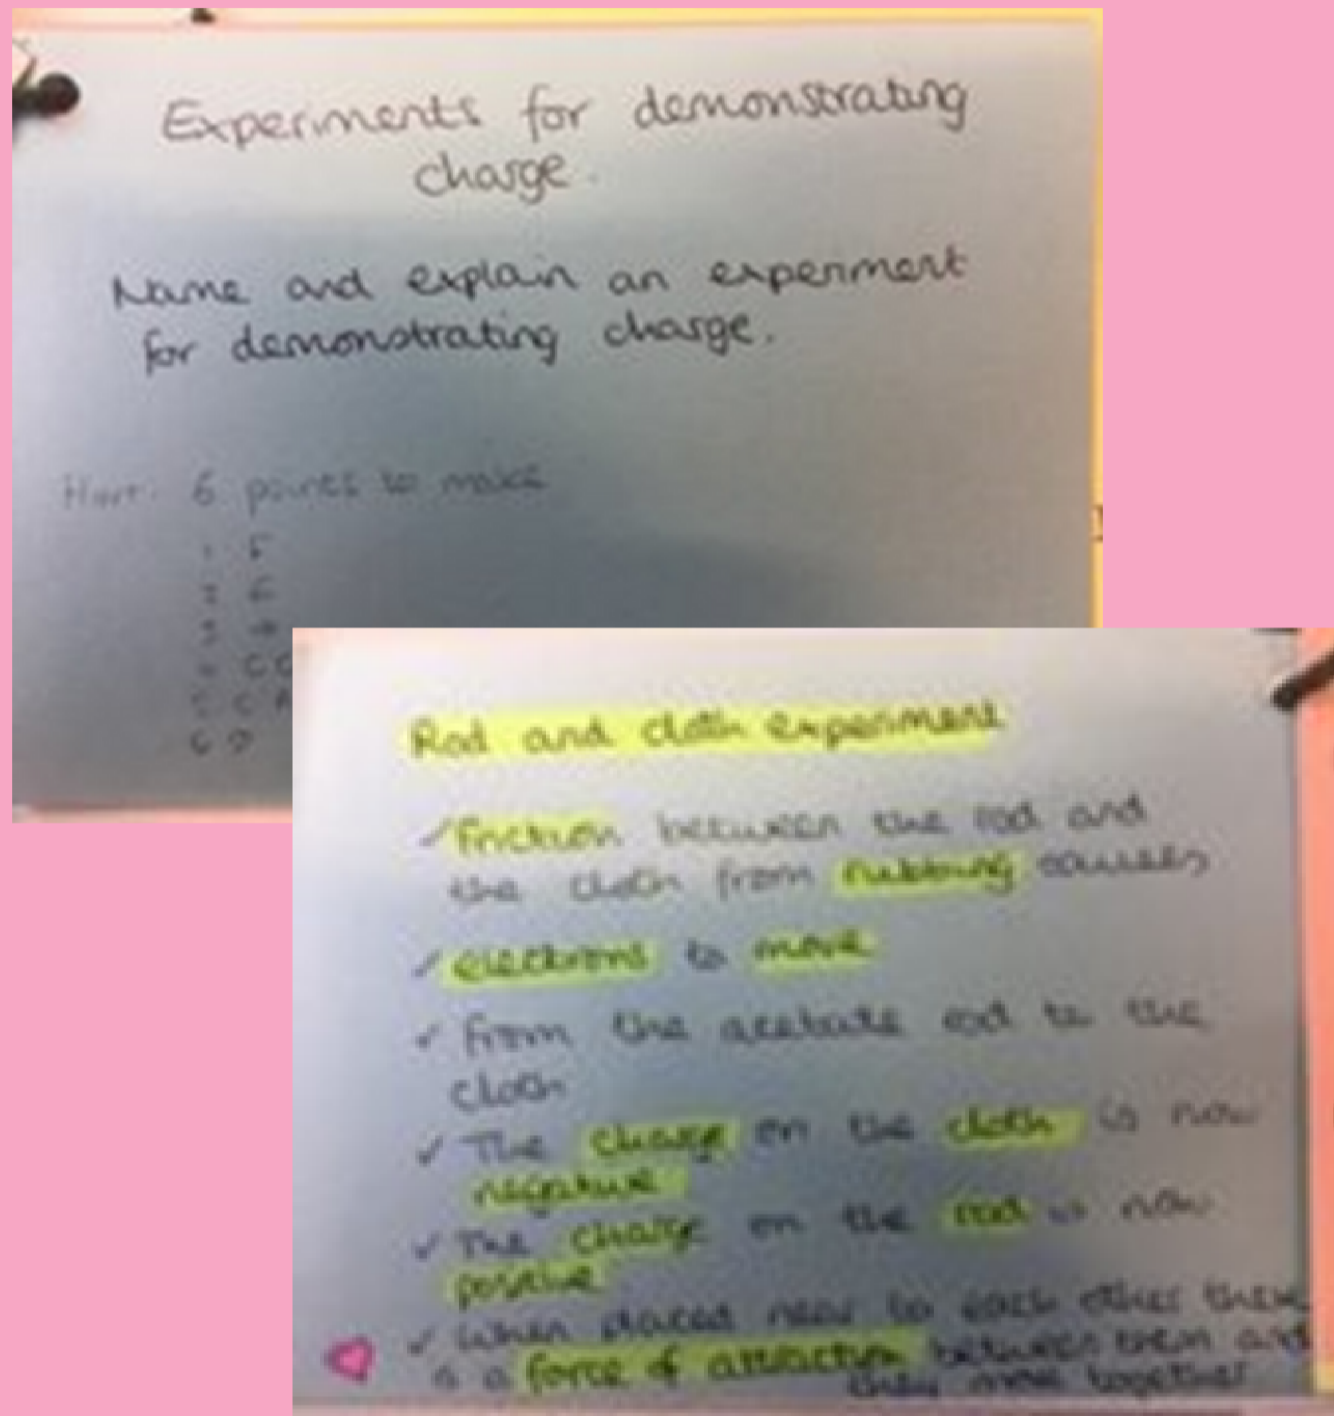 Experiments for demonstrating
charge.
Name and explain an experiment
for demonstrating charge.
Hint: 6 points to make
1 F
2 E
3
4 CC
5 C
6
Rod and cloth experiment
✓ friction between the rod and
the cloth from rubbing causes
✓ electrons to move
✓ from the acetate rod to the
cloth
✓ The charge on the cloth is now
negative
✓ The charge on the rod is now
positive
✓ When placed near to each other there
is a force of attraction between them and
they move together